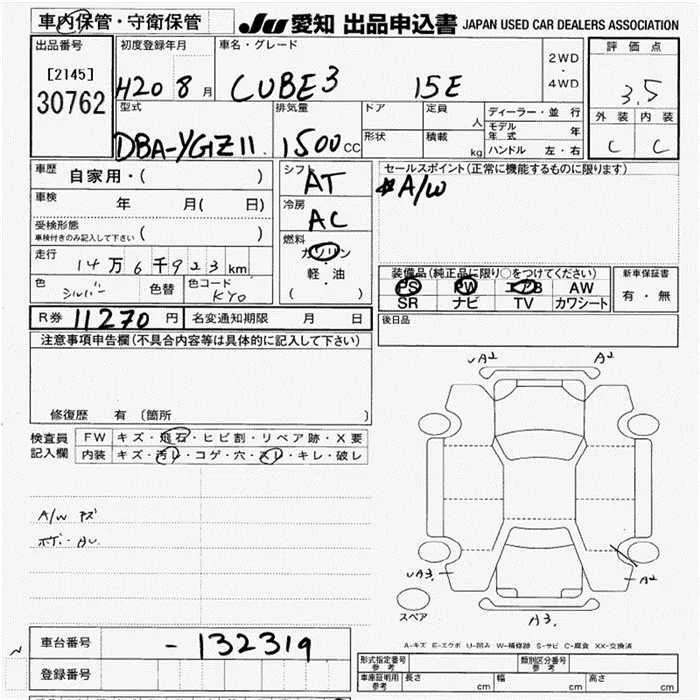 車内保管・守衛保管
JU 愛知 出品申込書 JAPAN USED CAR DEALERS ASSOCIATION
出品番号
[2145]
30762
初度登録年月
H20 8 月
車名・グレード
CUBE3 15E
2WD
・
4WD
評価点
3.5
外装 内装
C C
型式
DBA-YGZ11
排気量
1500 cc
ドア
形状
定員
人
積載
kg
ディーラー・並行
モデル年式 年
ハンドル 左・右
車歴
自家用・( )
車検
年 月( 日)
受検形態
車検付きのみ記入して下さい ( )
走行
14万6千923km
色 シルバー
色替
色コード
KY0
シフト
AT
冷房
AC
燃料
ガソリン
・
軽・油
( )
セールスポイント(正常に機能するものに限ります)
A/W
装備品(純正品に限り○をつけてください)
PS PW エアB AW
SR ナビ TV カワシート
新車保証書
有・無
R券 11270 円
名変通知期限 月 日
後日品
注意事項申告欄(不具合内容等は具体的に記入して下さい)
修復歴 有 〔箇所 〕
検査員
記入欄
FW キズ・飛石・ヒビ割・リペア跡・X要
内装 キズ・汚レ・コゲ・穴・スレ・キレ・破レ
A/W キズ
ボデー AU
UA2 A2
UA3. A2
スペア
A3.
A-キズ E-エクボ U-凹み W-補修跡 S-サビ C-腐食 XX-交換済
車台番号 -132319
登録番号
形式指定番号
参考
類別区分番号
参考
車庫証明用
参考
長さ cm 幅 cm 高さ cm